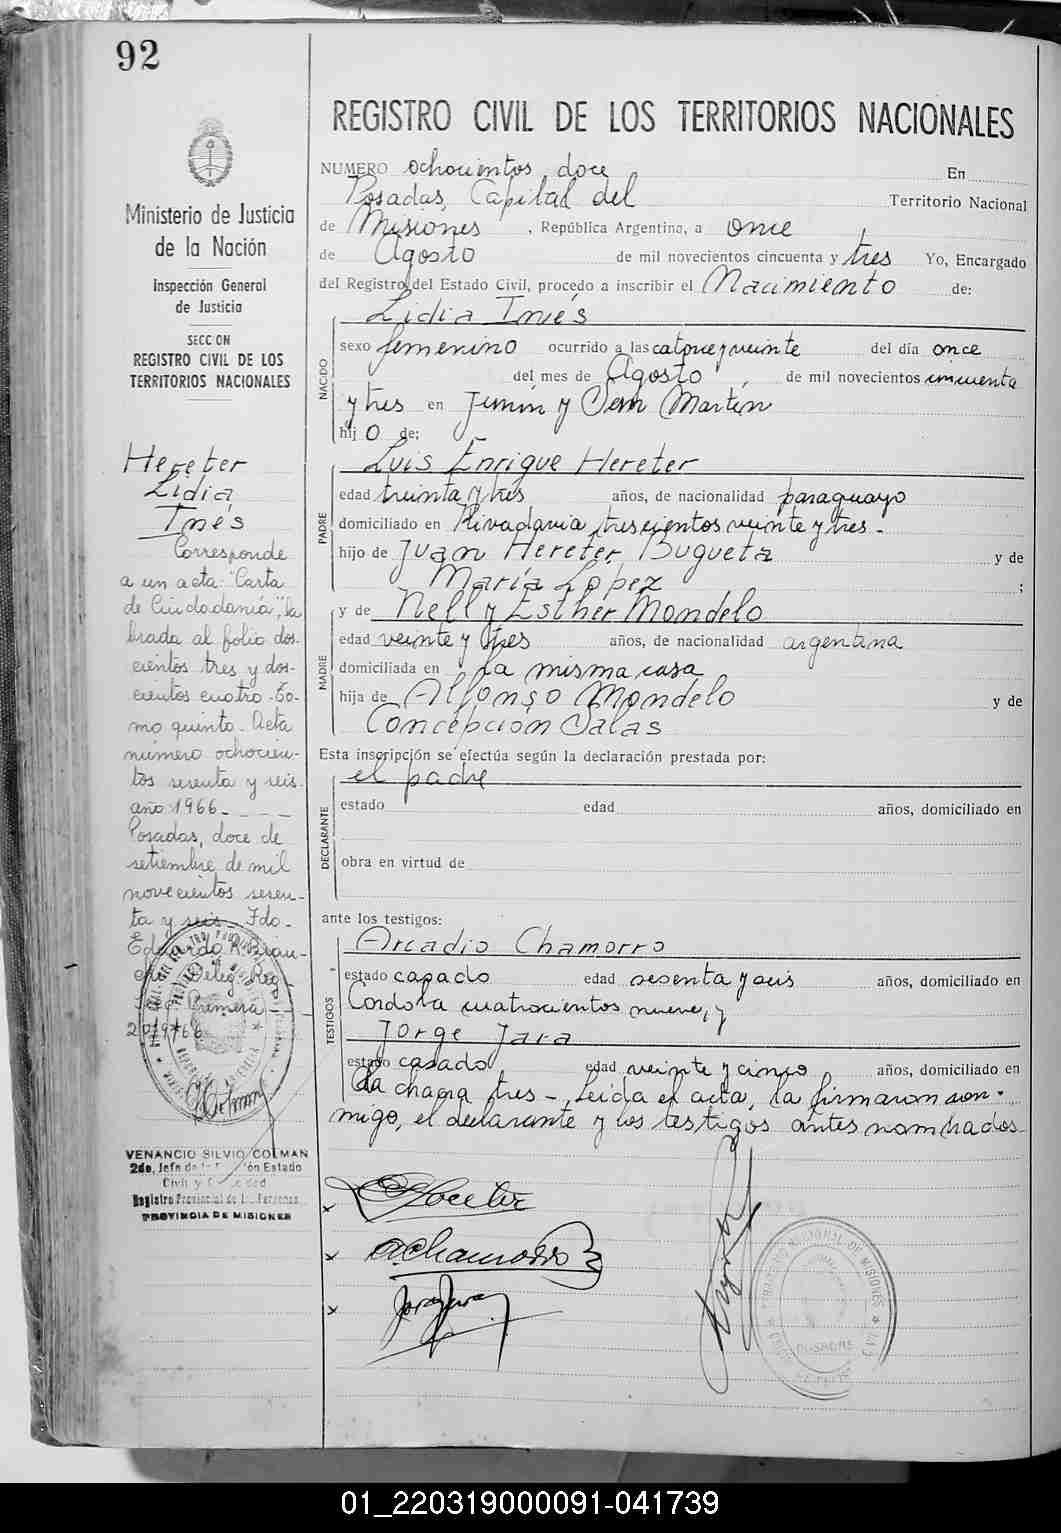 92
Ministerio de Justicia
de la Nación
Inspección General
de Justicia
SECCION
REGISTRO CIVIL DE LOS
TERRITORIOS NACIONALES
Hereter
Lidia
Inés
Corresponde
a un acta "Carta
de Ciudadanía", la
brada al folio dos-
cientos tres y dos-
cientos cuatro - To-
mo quinto - Acta
número ochocien-
tos sesenta y seis
año 1966 -
Posadas, doce de
setiembre de mil
novecientos sesen-
ta y seis - Fdo -
Eduardo R.
Deleg. Reg.
Primera
VENANCIO SILVIO COLMAN
2do. Jefe de Estado
Civil y
Registro Provincial de las Personas
PROVINCIA DE MISIONES
REGISTRO CIVIL DE LOS TERRITORIOS NACIONALES
NUMERO ochocientos doce En
Posadas, Capital del Territorio Nacional
de Misiones, República Argentina, a once
de Agosto de mil novecientos cincuenta y tres Yo, Encargado
del Registro del Estado Civil, procedo a inscribir el Nacimiento de:
Lidia Inés
NACIDO
sexo femenino ocurrido a las catorce y veinte del día once
del mes de Agosto de mil novecientos cincuenta
y tres en Junín y San Martín
hijo de:
Luis Enrique Hereter
PADRE
edad treinta y tres años, de nacionalidad paraguayo
domiciliado en Rivadavia trescientos veinte y tres -
hijo de Juan Hereter Bugueta y de
María López ;
y de Nelly Esther Mondelo
MADRE
edad veinte y tres años, de nacionalidad argentina
domiciliada en la misma casa
hija de Alfonso Mondelo y de
Concepción Salas
Esta inscripción se efectúa según la declaración prestada por:
el padre
DECLARANTE
estado edad años, domiciliado en
obra en virtud de
ante los testigos:
Arcadio Chamorro
TESTIGOS
estado casado edad sesenta y seis años, domiciliado en
Cordoba cuatrocientos nueve, y
Jorge Jara
estado casado edad veinte y cinco años, domiciliado en
la chacra tres - Leida el acta, la firmaron con-
migo, el declarante y los testigos antes nombrados
AChamorro
Jorge Jara
POSADAS
01_220319000091-041739